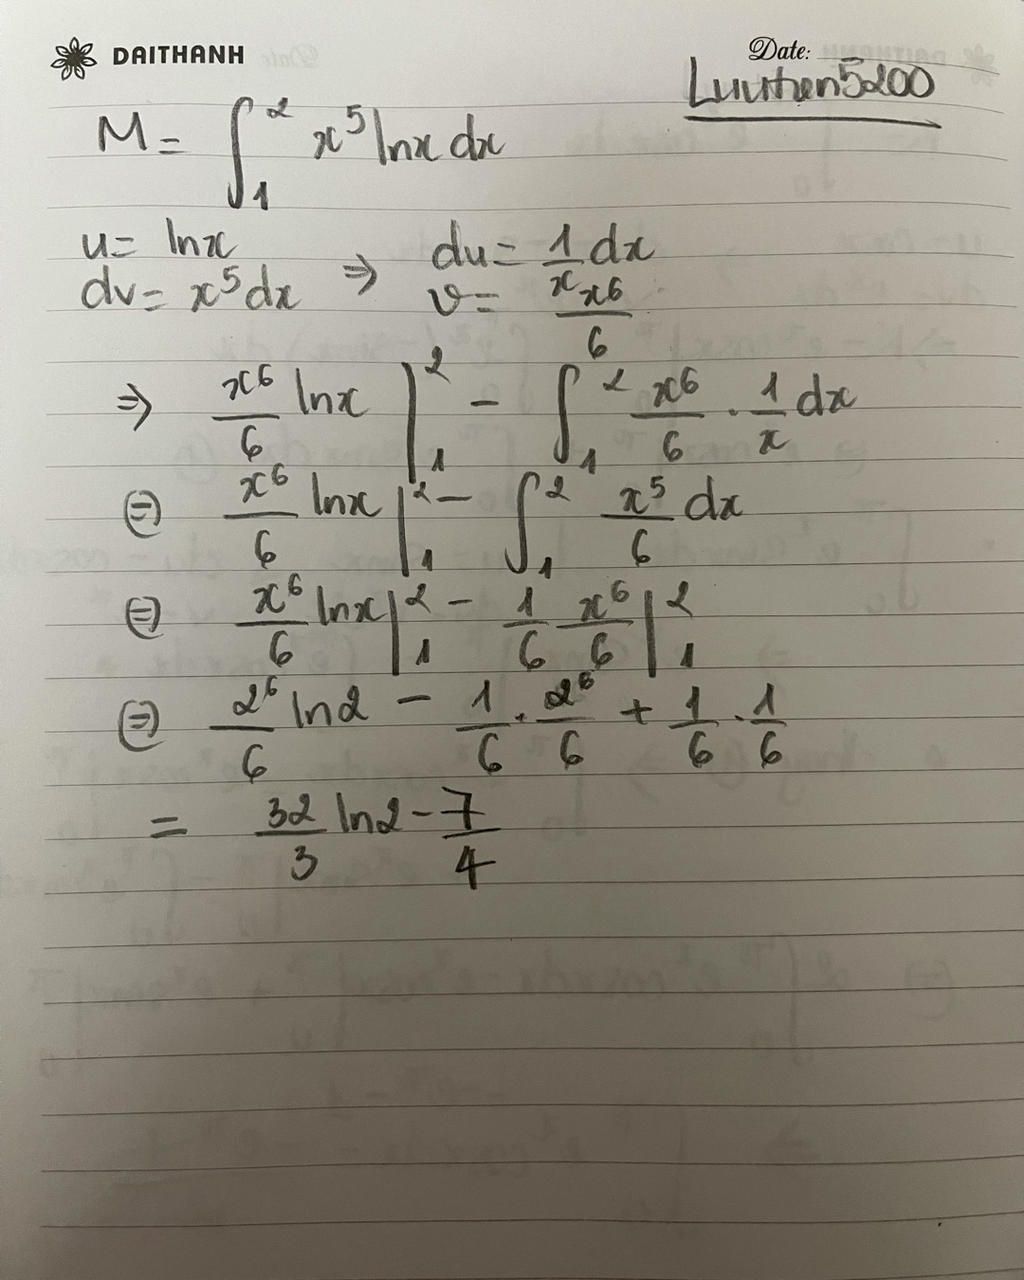 DAITHANH
Date:
Luuthen5200
M = ∫₁² x⁵ lnx dx
u = lnx
dv = x⁵dx ⇒ du = 1/x dx
v = x⁶/6
⇒ x⁶/6 lnx |₁² - ∫₁² x⁶/6 . 1/x dx
⇔ x⁶/6 lnx |₁² - ∫₁² x⁵/6 dx
⇔ x⁶/6 lnx |₁² - 1/6 x⁶/6 |₁²
⇔ 2⁶/6 ln2 - 1/6 . 2⁶/6 + 1/6 . 1/6
= 32/3 ln2 - 7/4